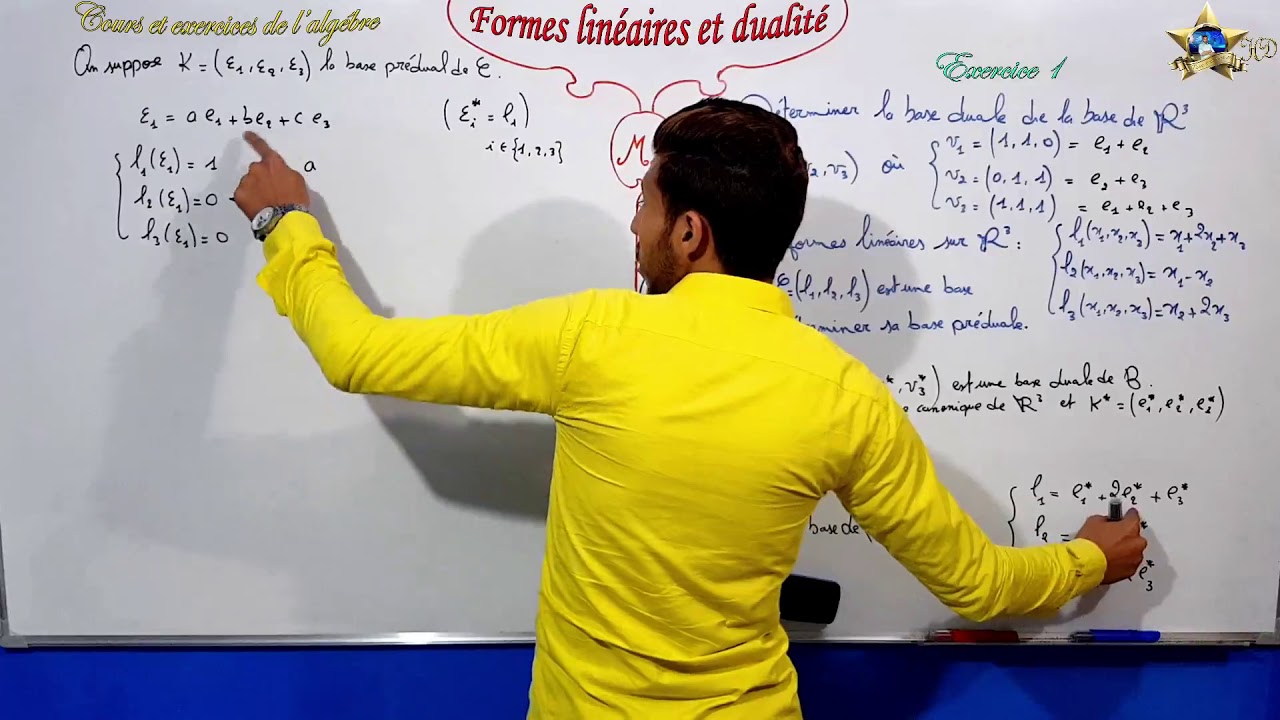 Cours et exercices de l'algébre
Formes linéaires et dualité
HD
On suppose K = (ε1, ε2, ε3) la base préduale de C.
Exercice 1
ε1 = a e1 + b e2 + c e3
(εi* = l1)
i ∈ {1, 2, 3}
l1(ε1) = 1
l2(ε1) = 0
l3(ε1) = 0
a
M
Déterminer la base duale de la base de ℝ³
v2, v3) où
v1 = (1, 1, 0) = e1 + e2
v2 = (0, 1, 1) = e2 + e3
v2 = (1, 1, 1) = e1 + e2 + e3
formes linéaires sur ℝ³ :
l1(x1, x2, x3) = x1 + 2x2 + x3
l2(x1, x2, x3) = x1 - x2
l3(x1, x2, x3) = x2 + 2x3
C = (l1, l2, l3) est une base
déterminer sa base préduale.
, v3*) est une base duale de B.
canonique de ℝ³ et K* = (e1*, e2*, e3*)
l1 = e1* + 2e2* + e3*
l2 =
base de
e3*